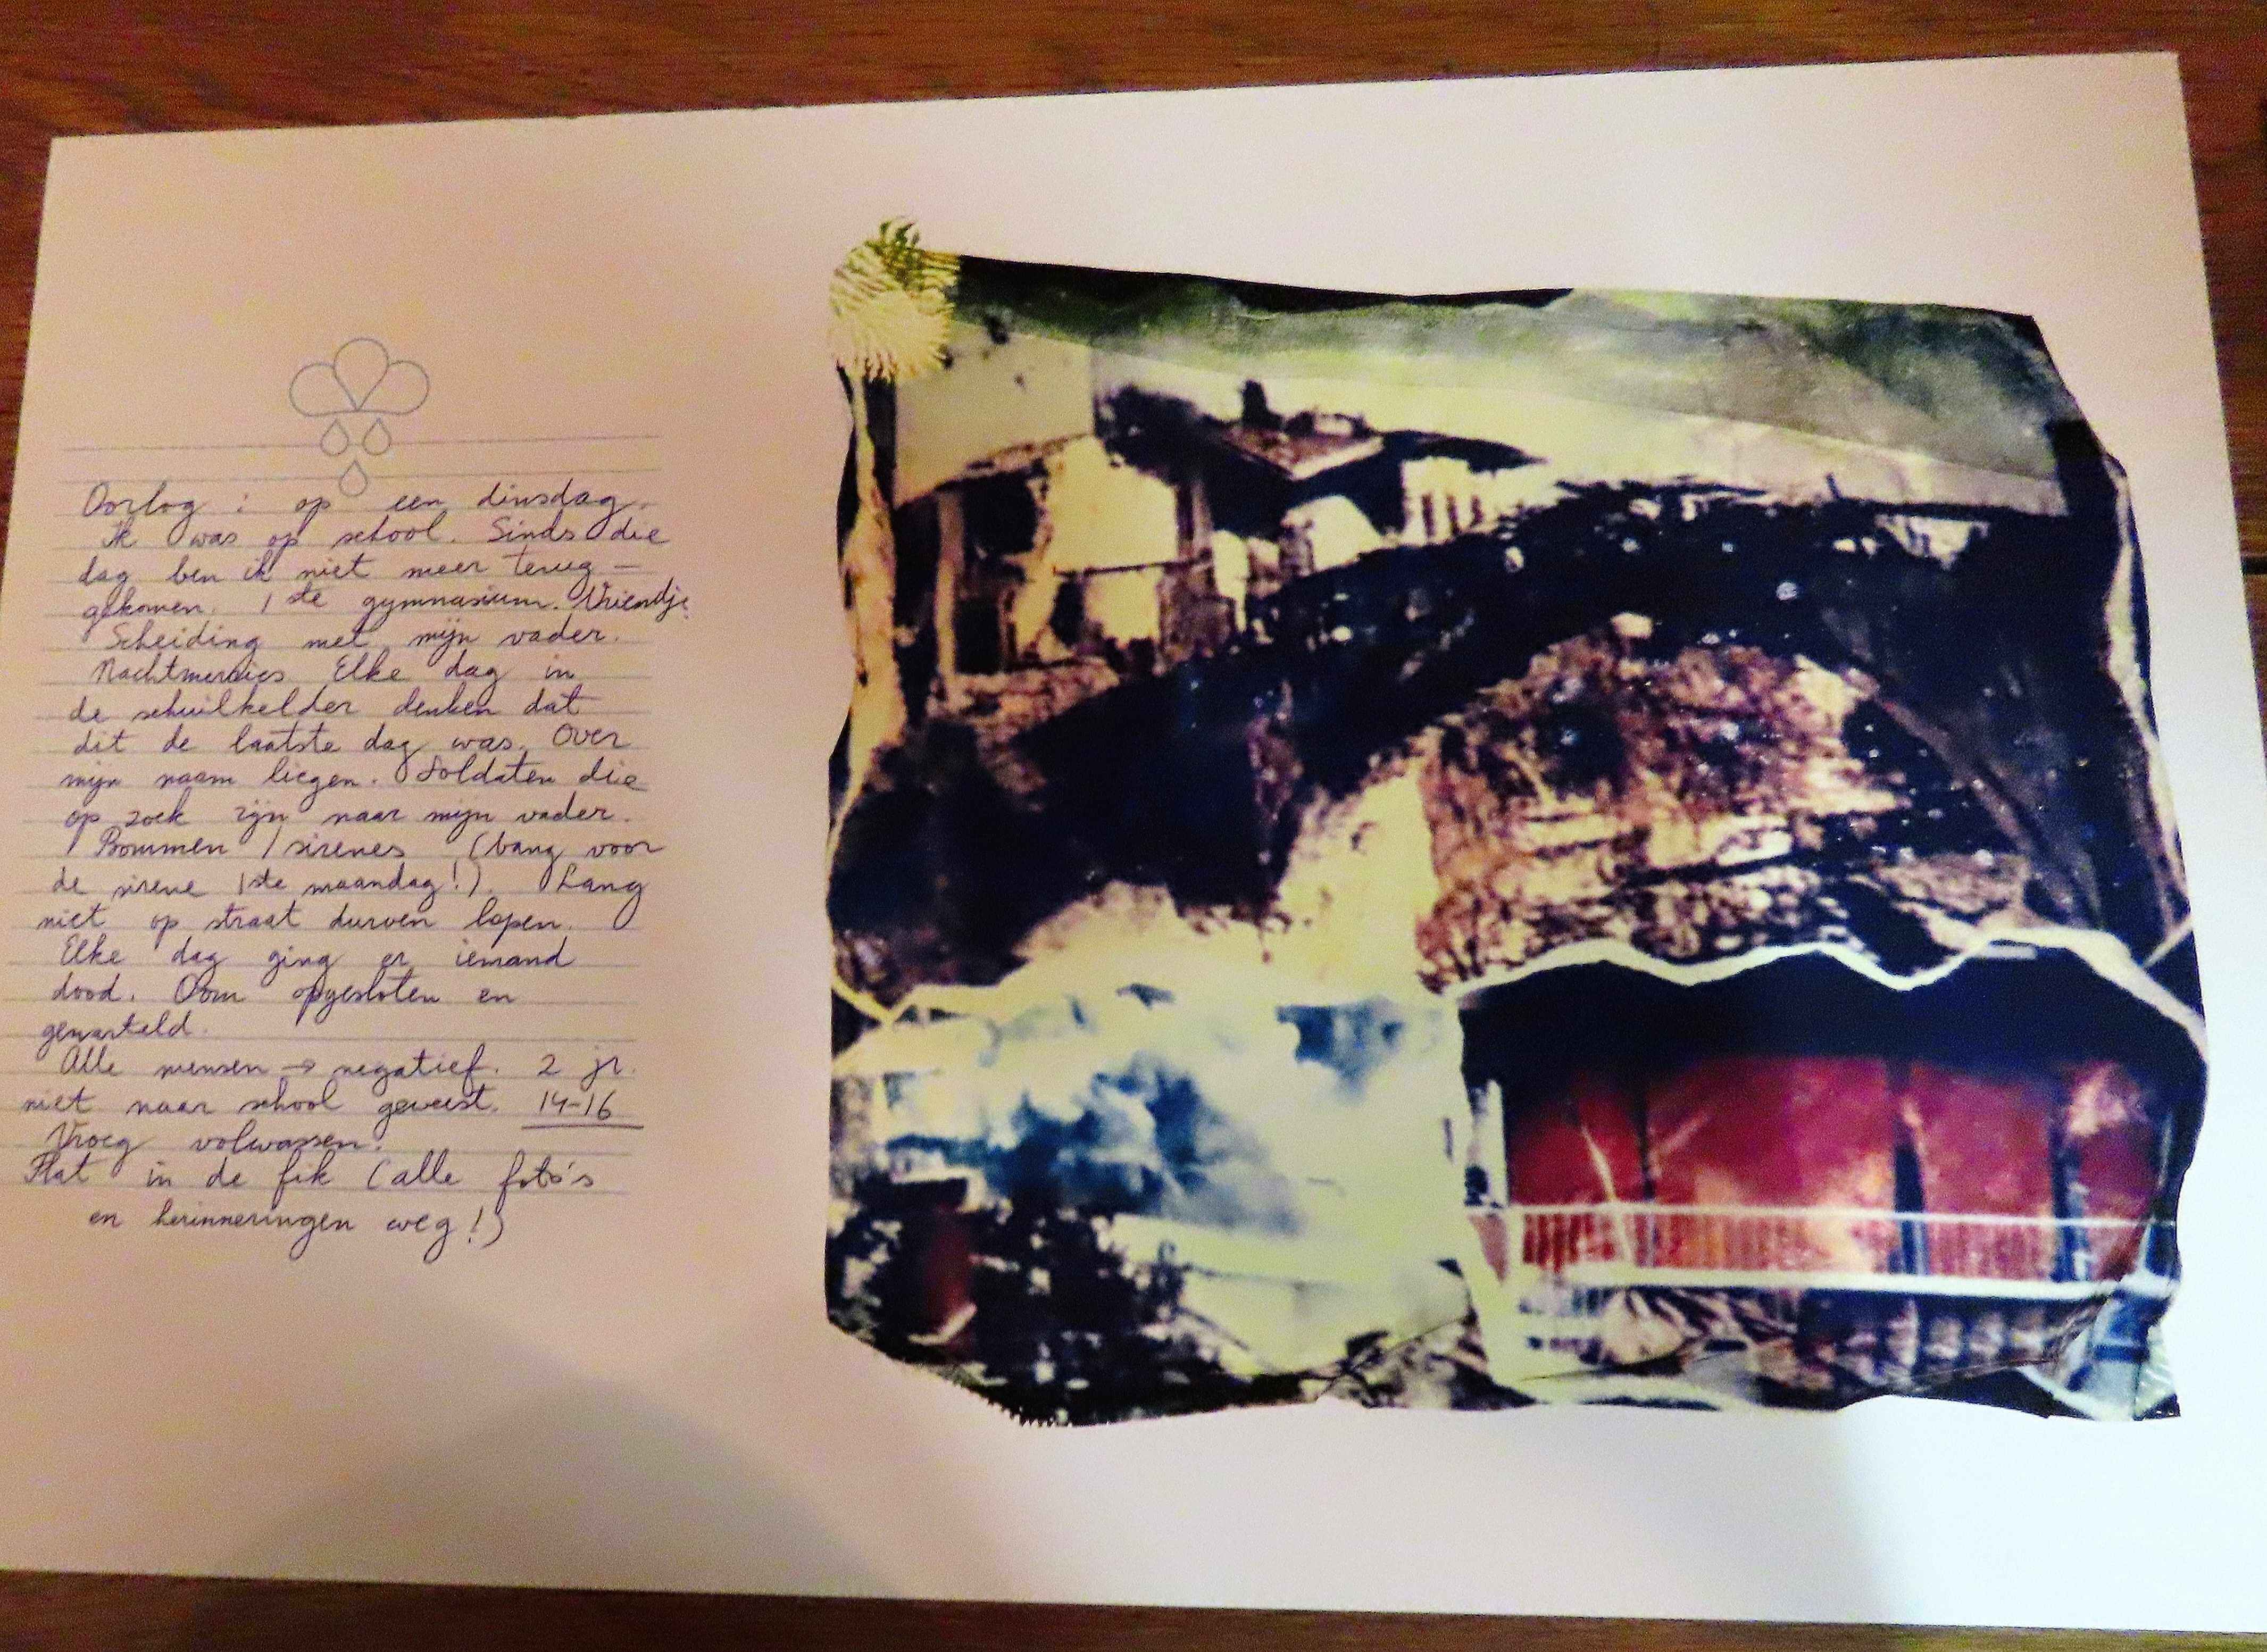 Oorlog : op een dinsdag.
Ik was op school. Sinds die
dag ben ik niet meer terug -
gekomen. 1ste gymnasium. Vriendje.
Scheiding met mijn vader.
Nachtmerries Elke dag in
de schuilkelder denken dat
dit de laatste dag was. Over
mijn naam liegen. Soldaten die
op zoek zijn naar mijn vader.
Bommen / sirenes (bang voor
de sirene 1ste maandag!). Lang
niet op straat durven lopen.
Elke dag ging er iemand
dood. Oom opgesloten en
gemarteld.
Alle mensen → negatief. 2 jr.
niet naar school geweest. 14-16
Vroeg volwassen.
Flat in de fik (alle foto's
en herinneringen weg!)